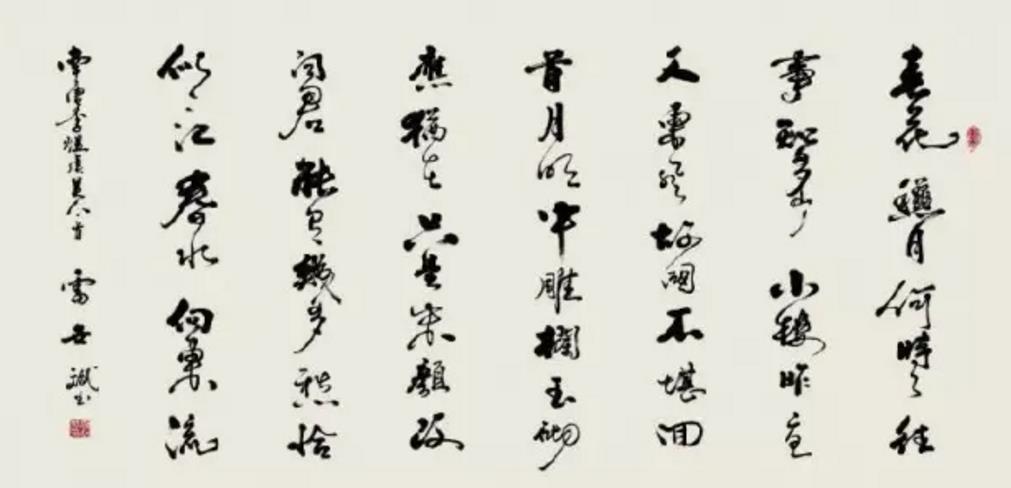 春花龝月何時了往
事知多少小樓昨夜
又東風故國不堪囬
首月明中雕欄玉砌
應猶在只是朱顏改
問君能有幾多愁恰
似一江春水向東流
南唐李煜虞美人 雷